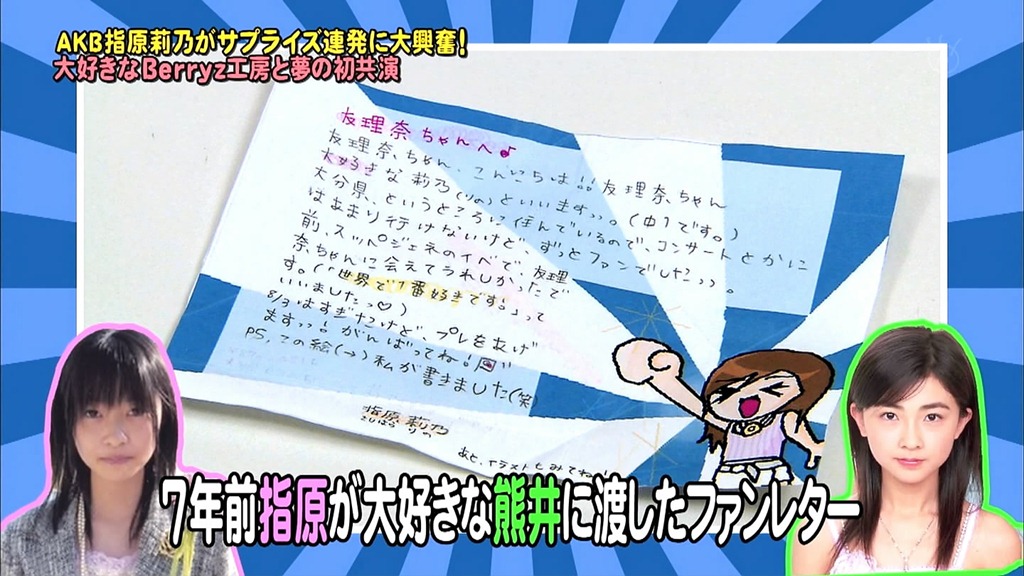 AKB指原莉乃がサプライズ連発に大興奮!
大好きなBerryz工房と夢の初共演
友理奈ちゃんへ♪
友理奈ちゃん、こんにちは!! 友理奈ちゃん
大好きな莉乃(りの)といいますっ。(中1です。)
大分県、というところに住んでいるので、コンサートとかに
はあまり行けないけど、ずっとファンでしたっっ。
前、スッペジェネのイベで、友理
奈ちゃんに会えてうれしかったで
す。(「世界で1番好きです!」って
いいましたっ♡)
8/3はすぎたけど プレをあげ
ますっっ!がんばってね!
PS,この絵(→)私が書きました(笑)
指原 莉乃
あと、イラストもみてね
7年前指原が大好きな熊井に渡したファンレター